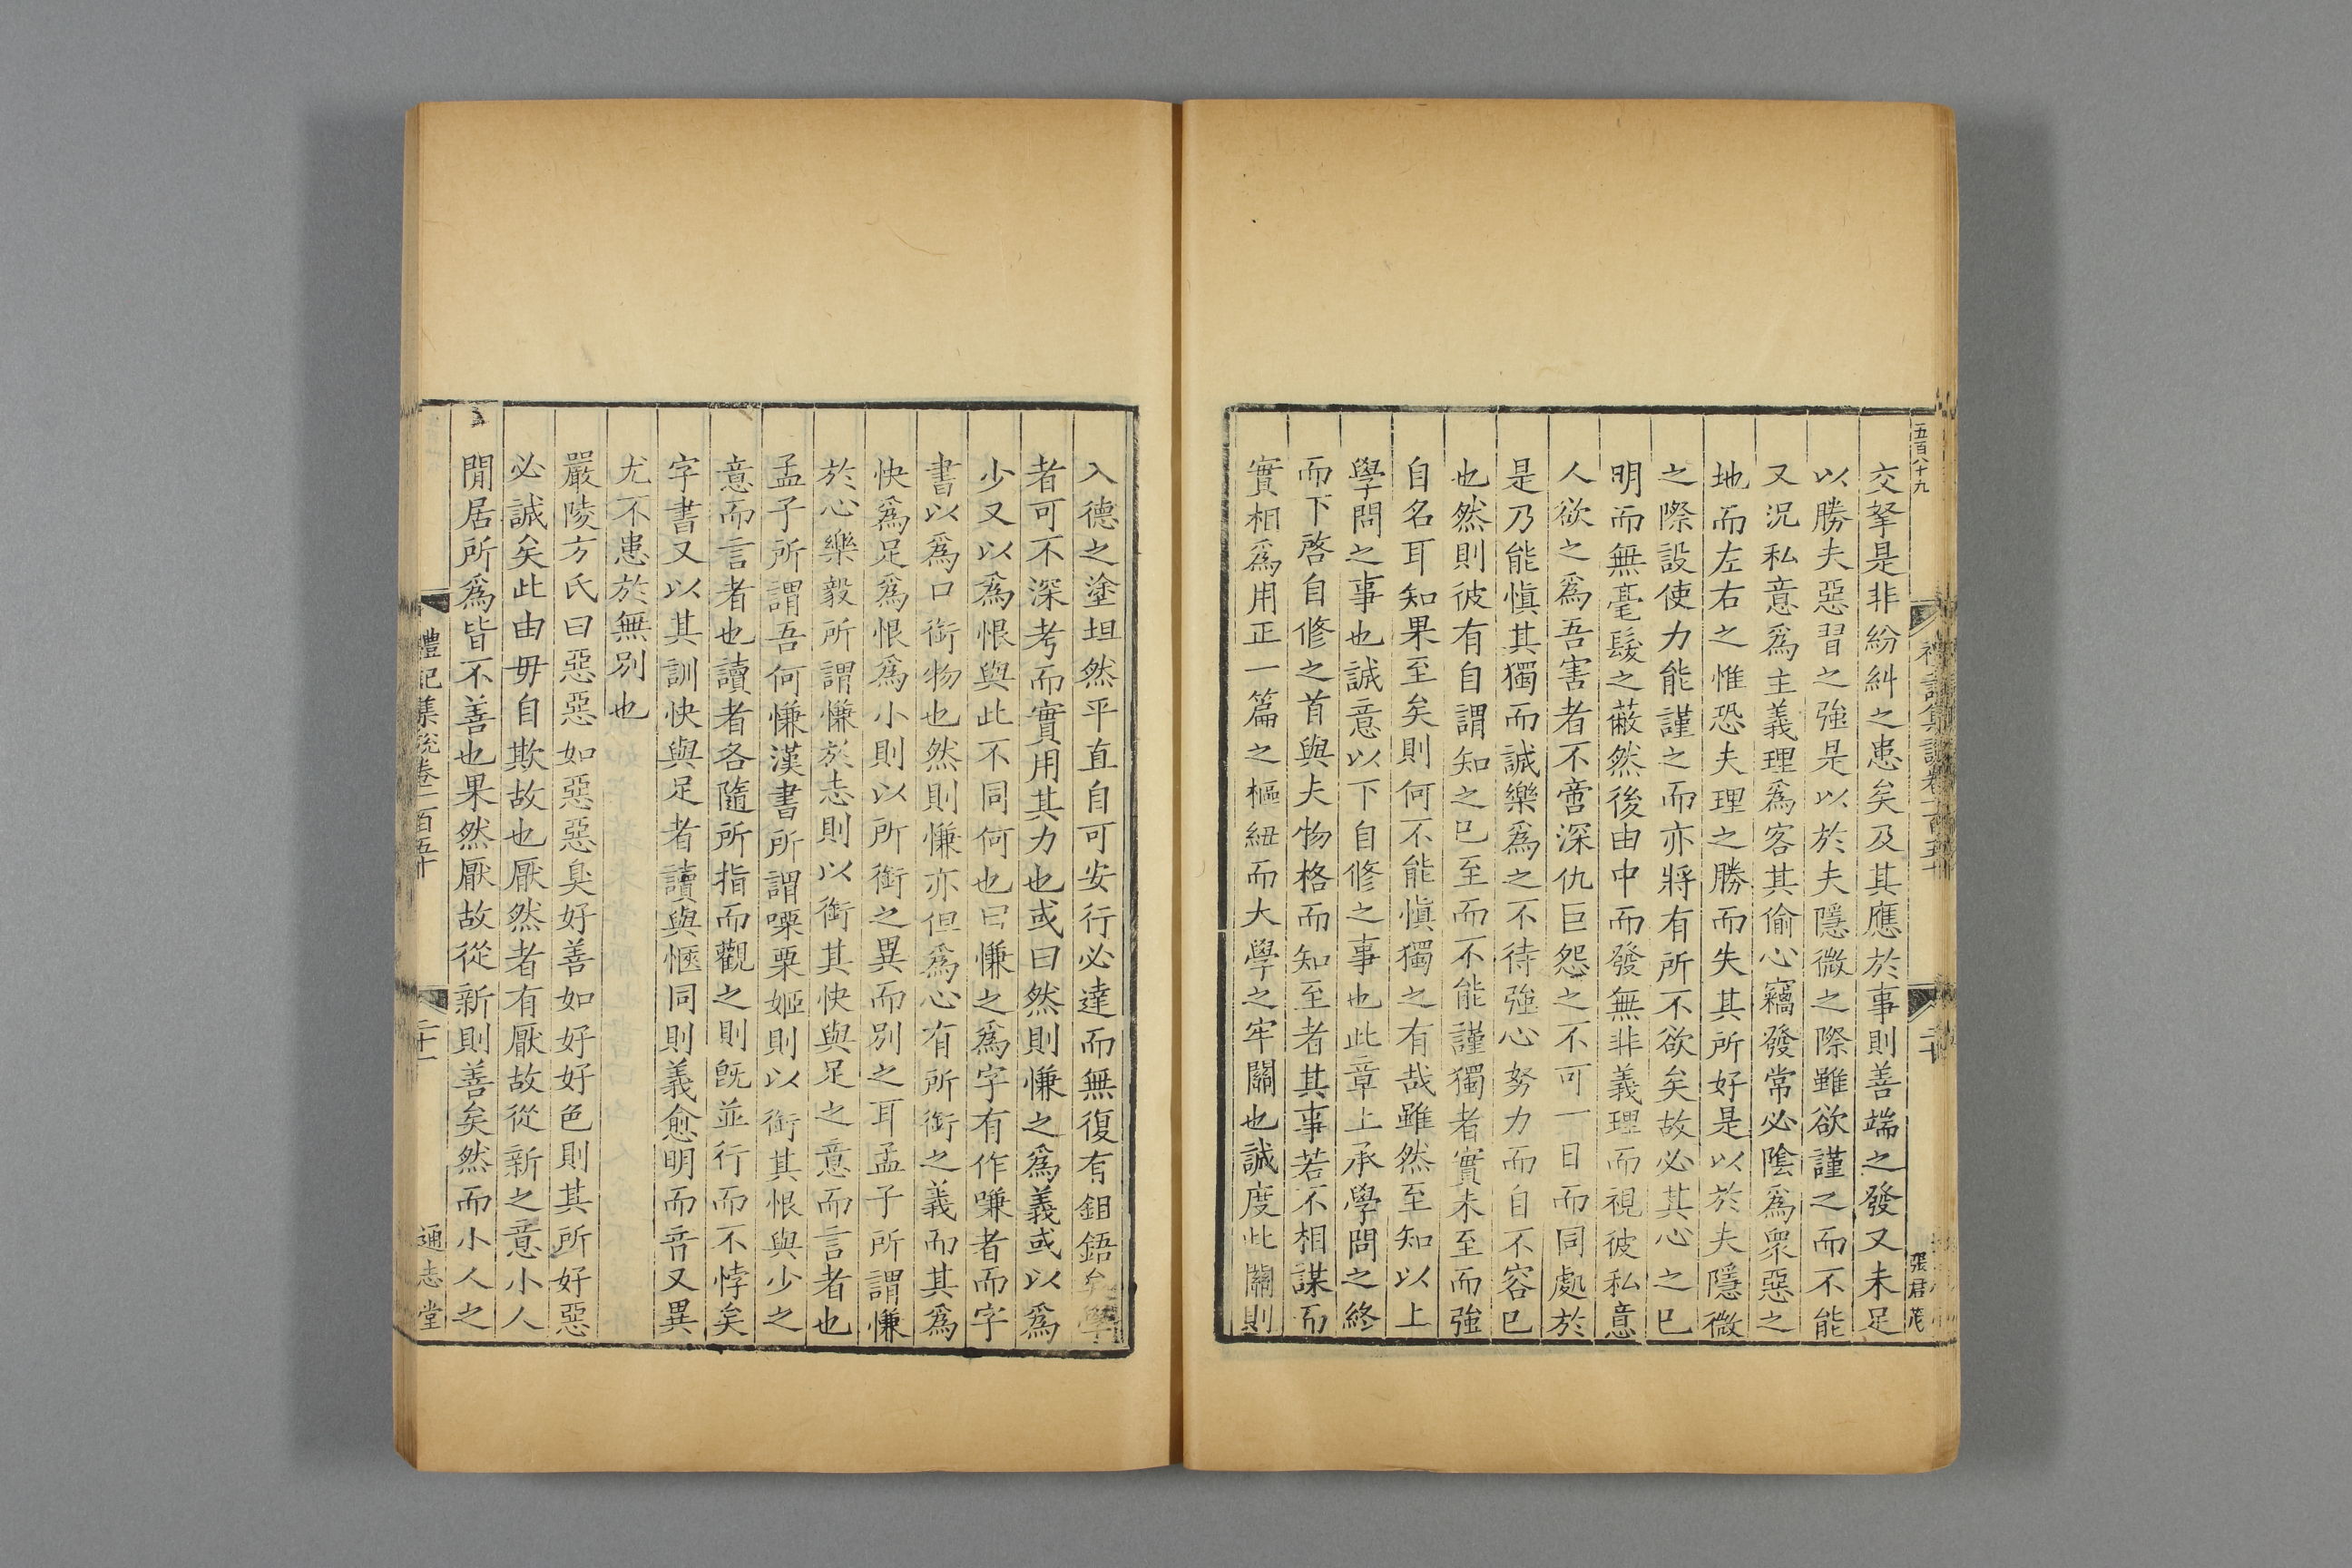 五百八十九
禮記集說卷一百五十
二十
張君茂
交拏是非紛糾之患矣及其應於事則善端之發又未足
以勝夫惡習之強是以於夫隱微之際雖欲謹之而不能
又況私意爲主義理爲客其偷心竊發常必陰爲衆惡之
地而左右之惟恐夫理之勝而失其所好是以於夫隱微
之際設使力能謹之而亦將有所不欲矣故必其心之已
明而無毫髮之蔽然後由中而發無非義理而視彼私意
人欲之爲吾害者不啻深仇巨怨之不可一日而同處於
是乃能慎其獨而誠樂爲之不待強心努力而自不容已
也然則彼有自謂知之已至而不能謹獨者實未至而強
自名耳知果至矣則何不能慎獨之有哉雖然至知以上
學問之事也誠意以下自修之事也此章上承學問之終
而下啓自修之首與夫物格而知至者其事若不相謀而
實相爲用正一篇之樞紐而大學之牢關也誠度此關則
入德之塗坦然平直自可安行必達而無復有鉏鋙矣學
者可不深考而實用其力也或曰然則慊之爲義或以爲
少又以爲恨與此不同何也曰慊之爲字有作嗛者而字
書以爲口銜物也然則慊亦但爲心有所銜之義而其爲
快爲足爲恨爲小則以所銜之異而別之耳孟子所謂慊
於心樂毅所謂慊於志則以銜其快與足之意而言者也
孟子所謂吾何慊漢書所謂嗛栗姬則以銜其恨與少之
意而言者也讀者各隨所指而觀之則旣並行而不悖矣
字書又以其訓快與足者讀與愜同則義愈明而音又異
尤不患於無別也
嚴陵方氏曰惡惡如惡惡臭好善如好好色則其所好惡
必誠矣此由毋自欺故也厭然者有厭故從新之意小人
閒居所爲皆不善也果然厭故從新則善矣然而小人之
禮記集說卷一百五十
二十一
通志堂